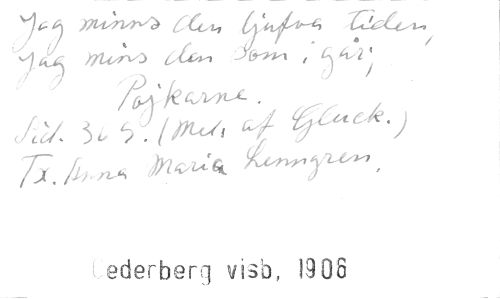 Jag minns den ljufva tiden,
Jag mins den som i går,
Pojkarne.
Sid. 365. (Mel. af Gluck.)
Tx. Anna Maria Lenngren.
Cederberg visb, 1906